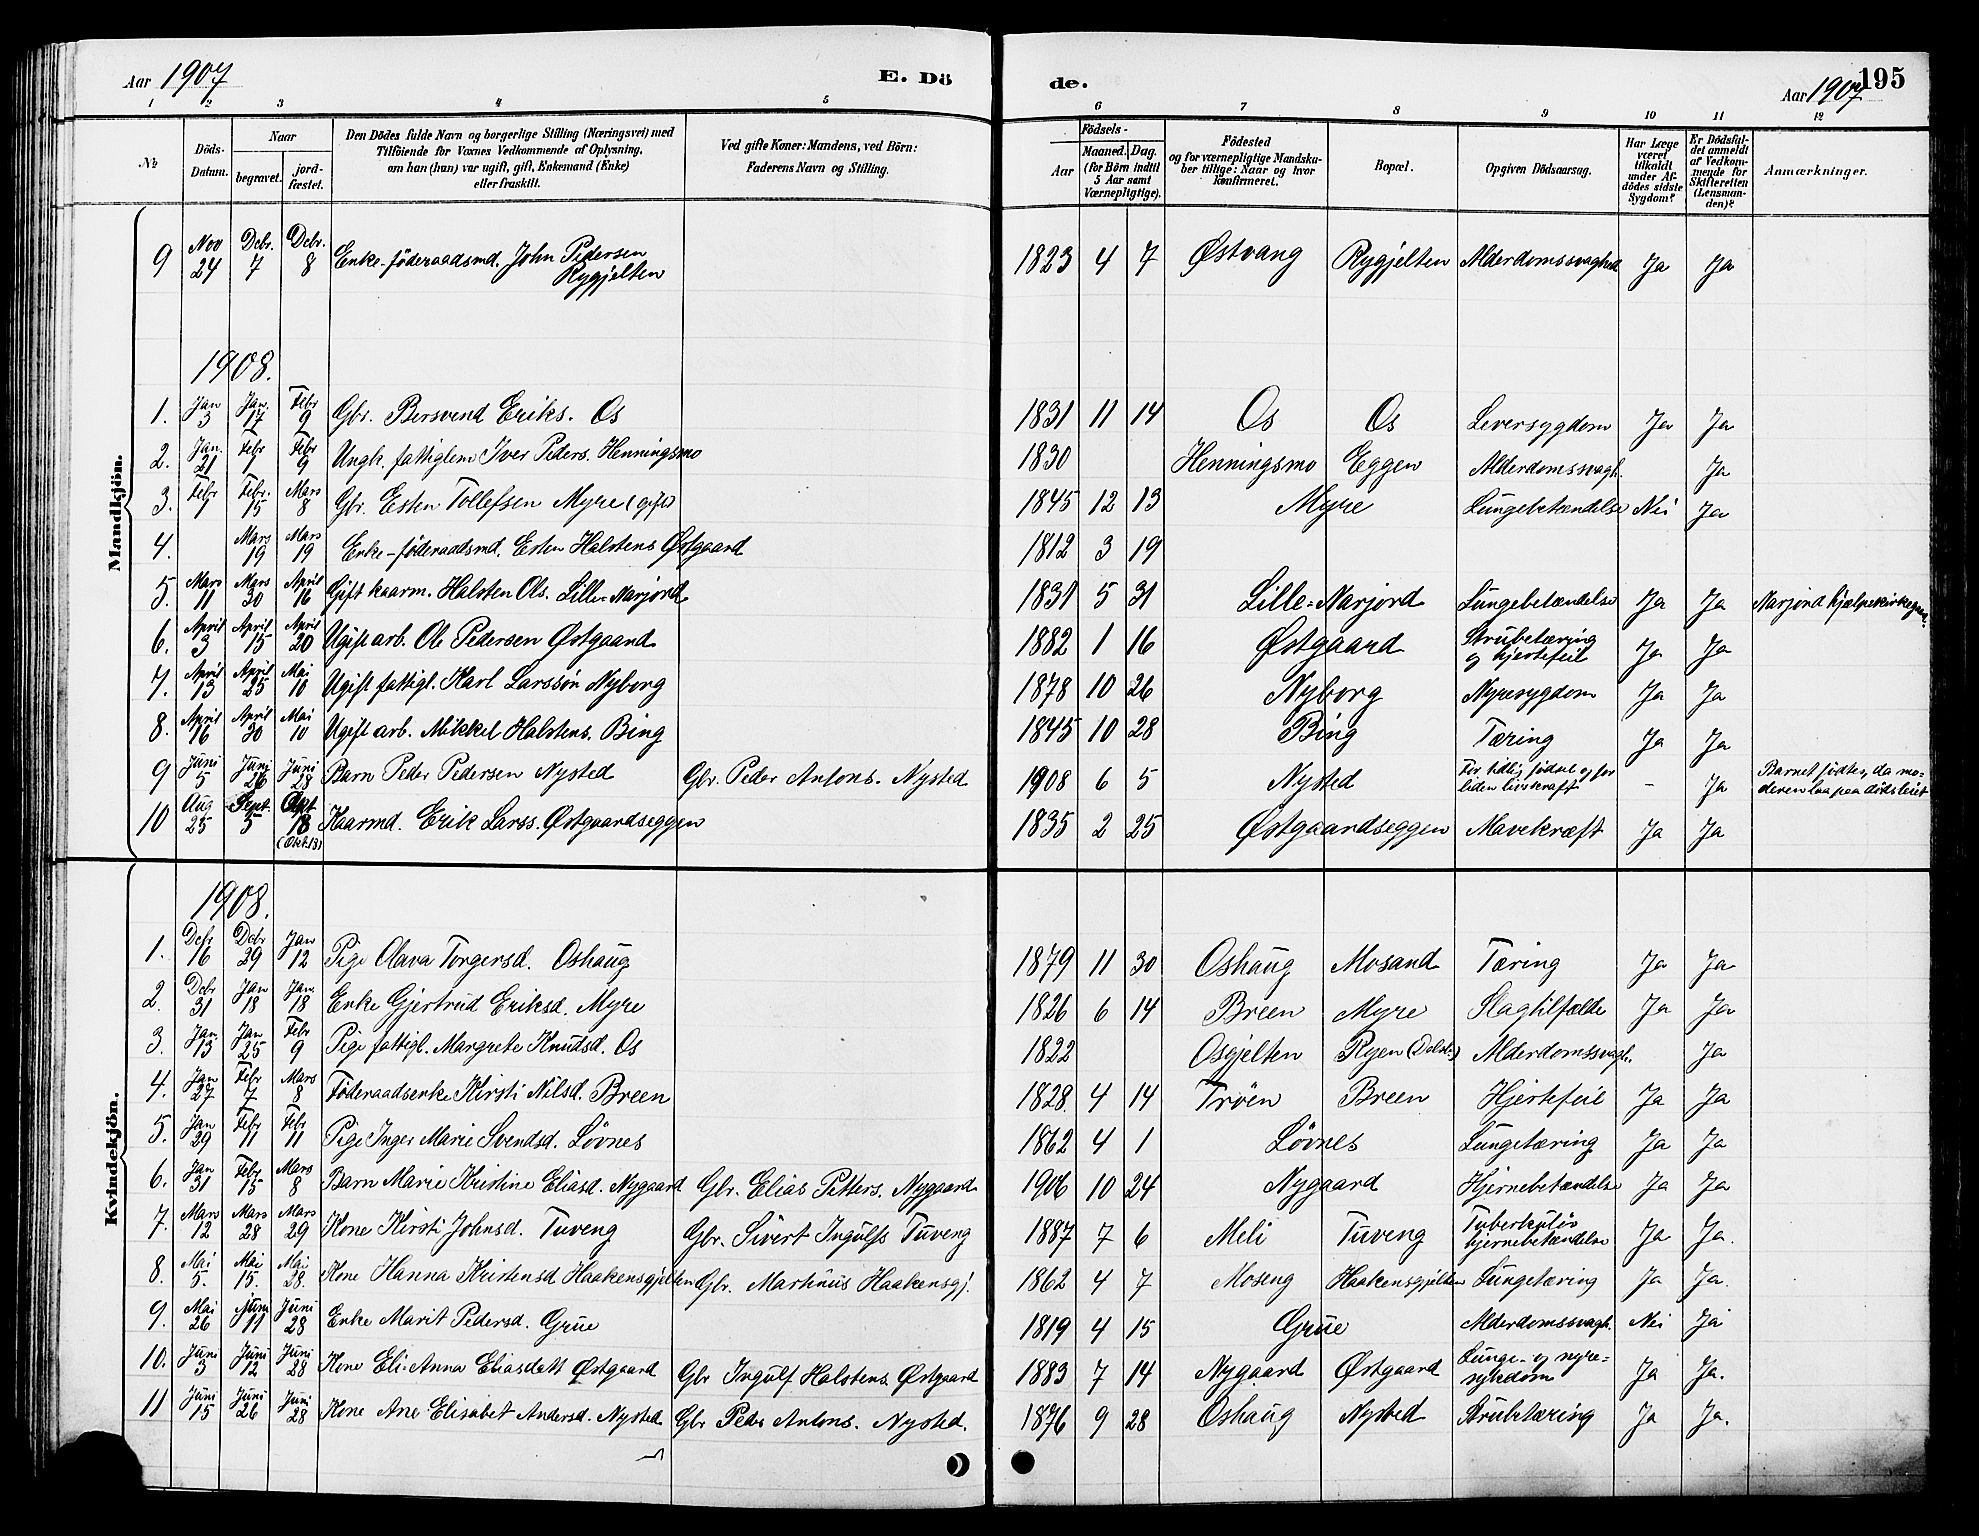 Aar 1907
E. Dö
de.
Aar 1907
195
1 2 3 4 5 6 7 8 9 10 11 12
No
Döds-Datum.
Naar
begravet.
jord-fæstet.
Den Dödes fulde Navn og borgerlige Stilling (Næringsvei) med
Tilföiende for Voxnes Vedkommende af Oplysning,
om han (hun) var ugift, gift, Enkemand (Enke)
eller fraskilt.
Ved gifte Koner: Mandens, ved Börn:
Faderens Navn og Stilling.
Födsels-
Aar
Maaned. Dag.
(for Börn indtil
5 Aar samt
Værnepligtige).
Födested
og for værnepligtige Mandska-
ber tillige: Naar og hvor
konfirmeret.
Bopæl.
Opgiven Dödsaarsag.
Har Læge
været
tilkaldt
under Af-
dödes sidste
Sygdom?
Er Dödsfal-
det anmeldt
af Vedkom-
mende for
Skifteretten
(Lensman-
den)?
Anmærkninger.
Mandkjön.
9 Nov 24 Debr. 7 Debr. 8 Enke-føderaadsmd. John Pedersen Rygjelten 1823 4 7 Østvang Rygjelten Alderdomssvaghed Ja Ja
1908.
1. Jan 3 Jan. 17 Febr 9 Gbr. Bersvend Eriks. Os 1831 11 14 Os Os Leversygdom Ja Ja
2. Jan. 21 Febr 1 Febr 9 Ungk. fattiglem Iver Peders. Henningsmo 1830 Henningsmo Eggen Alderdomssvagh. Ja
3. Febr 1 Febr. 15 Mars 8 Gbr. Esten Tollefsen Myre (gift) 1845 12 13 Myre Lungebetændelse Nei Ja
4. Mars 19 Mars 19 Enke-føderaadsmd. Esten Halstens Østgaard 1812 3 19
5. Mars 11 Mars 30 April 16 Gift kaarm. Halsten Ols. Lille-Narjord 1831 5 31 Lille-Narjord Lungebetændelse Ja Ja Narjord hjælpekirkegaard.
6. April 3 April 15 April 20 Ugift arb. Ole Pedersen Østgaard 1882 1 16 Østgaard Strubetæring og hjertefeil Ja Ja
7. April 13 April 25 Mai 10 Ugift fattigl. Karl Larssøn Nyborg 1878 10 26 Nyborg Nyresygdom Ja Ja
8. April 16 April 30 Mai 10 Ugift arb. Mikkel Halstens. Bing 1845 10 28 Bing Tæring Ja Ja
9 Juni 5 Juni 26 Juni 28 Barn Peder Pedersen Nysted Gbr. Peder Antons. Nysted 1908 6 5 Nysted For tidlig fødsel og for liden livskraft - Ja Barnet fødtes, da moderen laa paa dødsleiet
10 Aug 25 Sept. 5 Okt 18 (Okt.13) Kaarmd. Erik Larss. Østgaardseggen 1835 2 25 Østgaardseggen Mavekræft Ja Ja
Kvindekjön.
1908.
1. Debr 16 Debr 29 Jan 12 Pige Olava Torgersd. Oshaug 1879 11 30 Oshaug Mosand Tæring Ja Ja
2. Debr 31 Jan 18 Jan. 18 Enke Gjertrud Eriksd. Myre 1826 6 14 Breen Myre Slagtilfælde Ja Ja
3. Jan 13 Jan 25 Febr 9 Pige fattigl. Margrete Knutsd. Os 1822 Osgjelten Ryen (Dalsb.) Alderdomssvagh. Ja
4. Jan 27 Febr 7 Mars 8 Føderaadsenke Kirsti Nilsd. Breen 1828. 4 14 Trøen Breen Hjertefeil Ja Ja
5. Jan 29 Febr 11 Febr 11 Pige Inger Marie Svendsd. Løvnes 1862 4 1 Løvnes Lungetæring Ja Ja
6. Jan 31 Febr 15 Mars 8 Barn Marie Kristine Eliasd. Nygaard Gbr. Elias Petters. Nygaard 1906 10 24 Nygaard Hjernebetændelse Ja Ja
7. Mars 12 Mars 28 Mars 29 Kone Kirsti Johnsd. Tuveng Gbr. Sivert Ingulfs Tuveng 1887 7 6 Meli Tuveng Tuberkuløs hjernebetændelse Ja Ja.
8. Mai 5. Mai 15. Mai 28. Kone Hanna Kristensd Haakensgjelten Gbr. Martinus Haakensgj. 1862 4 7 Moseng Haakensgjelten Lungetæring Ja Ja.
9. Mai 26 Juni 11 Juni 28 Enke Marit Pedersd. Grue 1819 4 15 Grue Alderdomssvagh. Nei Ja
10. Juni 3 Juni 12 Juni 28 Kone Eli-Anna Eliasdatt Østgaard Gbr Ingulf Halstens. Østgaard 1883 7 14 Nygaard Østgaard Lunge- og nyre-sykdom Ja Ja.
11 Juni 15 Juni 26 Juni 28 Kone Ane Elisabet Andersd. Nysted Gbr Peder Antons. Nysted. 1876 9 28 Oshaug Nysted Strubetæring Ja Ja.